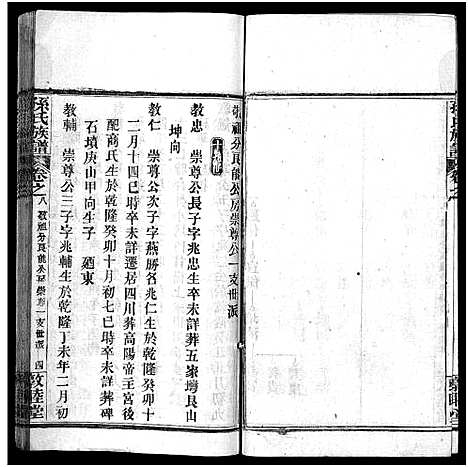 祖分良能公房崇尊公一支世派
教忠　崇尊公長子字兆忠生卒未詳葬五家塆艮山
坤向
教仁　崇尊公次子字燕勝名兆仁生於乾隆癸卯十
二月十四巳時卒未詳遷居四川葬高陽帝主宮後
配商氏生於乾隆癸卯十月初七巳時卒未詳葬碑
石墳庚山甲向生子　廼東
教輔　崇尊公三子字兆輔生於乾隆丁未年二月初
孫氏族譜
卷之八
祖分良能公房崇尊一支世派　四
敦睦堂